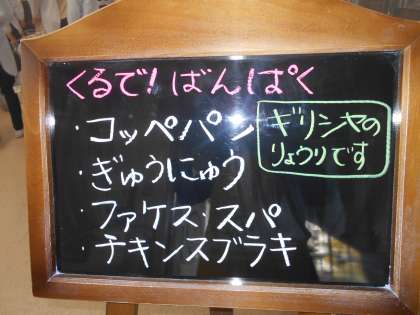 くるで!ばんぱく
・コッペパン
・ぎゅうにゅう
・ファケス・スパ
・チキンスブラキ
ギリシャの
りょうりです